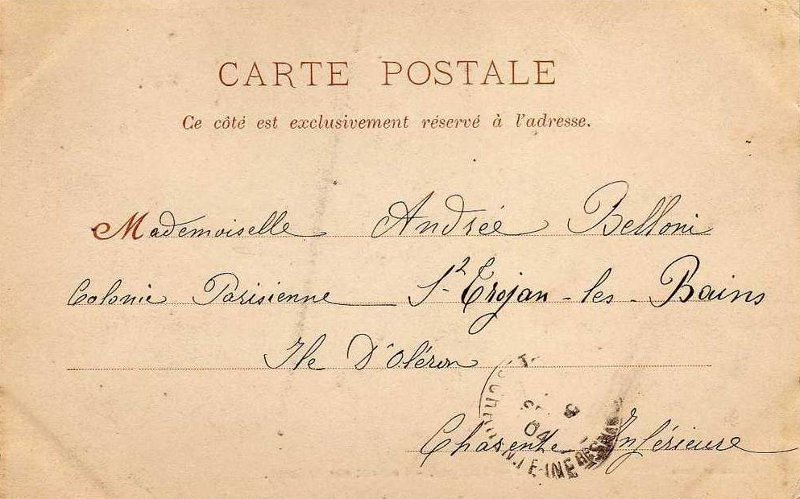 CARTE POSTALE
Ce côté est exclusivement réservé à l'adresse.
Mademoiselle Andrée Belloni
Colonie Parisienne St Trojan-les-Bains
Ile D'Oléron
Charente Inférieure
9
04